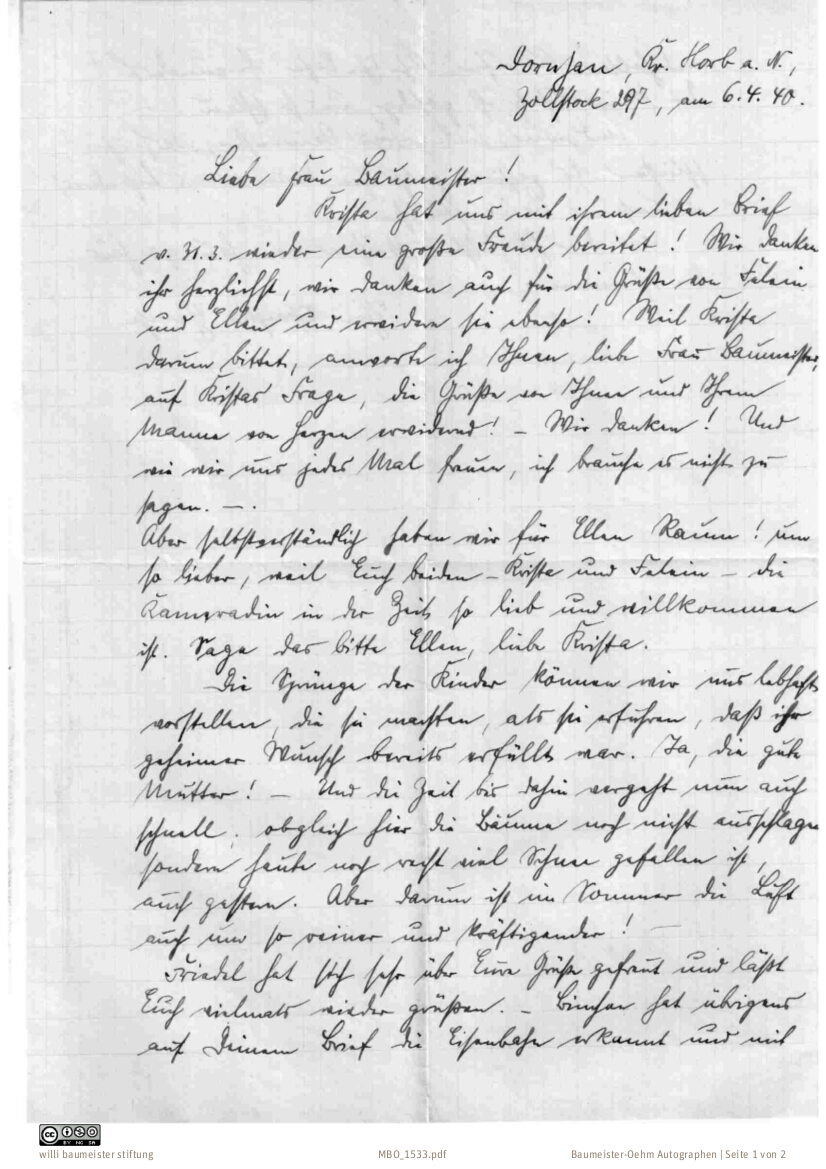 Dornhan, Kr. Horb a. N.,
Zollstock 297, am 6.4.40.
Liebe Frau Baumeister!
Krista hat uns mit ihrem lieben Brief
v. 31.3. wieder eine große Freude bereitet! Wir danken
ihr herzlichst, wir danken auch für die Grüße von Felein
und Ellen und erwidern sie ebenso! Weil Krista
darum bittet, anworte ich Ihnen, liebe Frau Baumeister,
auf Kristas Frage, die Grüße von Ihnen und Ihrem
Manne von Herzen erwidernd! – Wir danken! Und
wie wir uns jedes Mal freuen, ich brauche es nicht zu
sagen. –.
Aber selbstverständlich haben wir für Ellen Raum! um
so lieber, weil Euch beiden – Krista und Felein – die
Kameradin in der Zeit so lieb und willkommen
ist. Sage das bitte Ellen, liebe Krista.
Die Sprünge der Kinder können wir uns lebhaft
vorstellen, die sie machten, als sie erfuhren, daß ihr
geheimer Wunsch bereits erfüllt war. Ja, die gute
Mutter! – Und die Zeit bis dahin vergeht nun auch
schnell, obgleich hier die Bäume noch nicht ausschlagen
sondern heute noch recht viel Schnee gefallen ist,
auch gestern. Aber darum ist im Sommer die Luft
auch um so reiner und kräftigender! –
Friedel hat sich sehr über Eure Grüße gefreut und läßt
Euch vielmals wieder grüßen. – hat übrigens
auf Deinem Brief die Eisenbahn erkannt und mit
willi baumeister stiftung
MBO_1533.pdf
Baumeister-Oehm Autographen | Seite 1 von 2